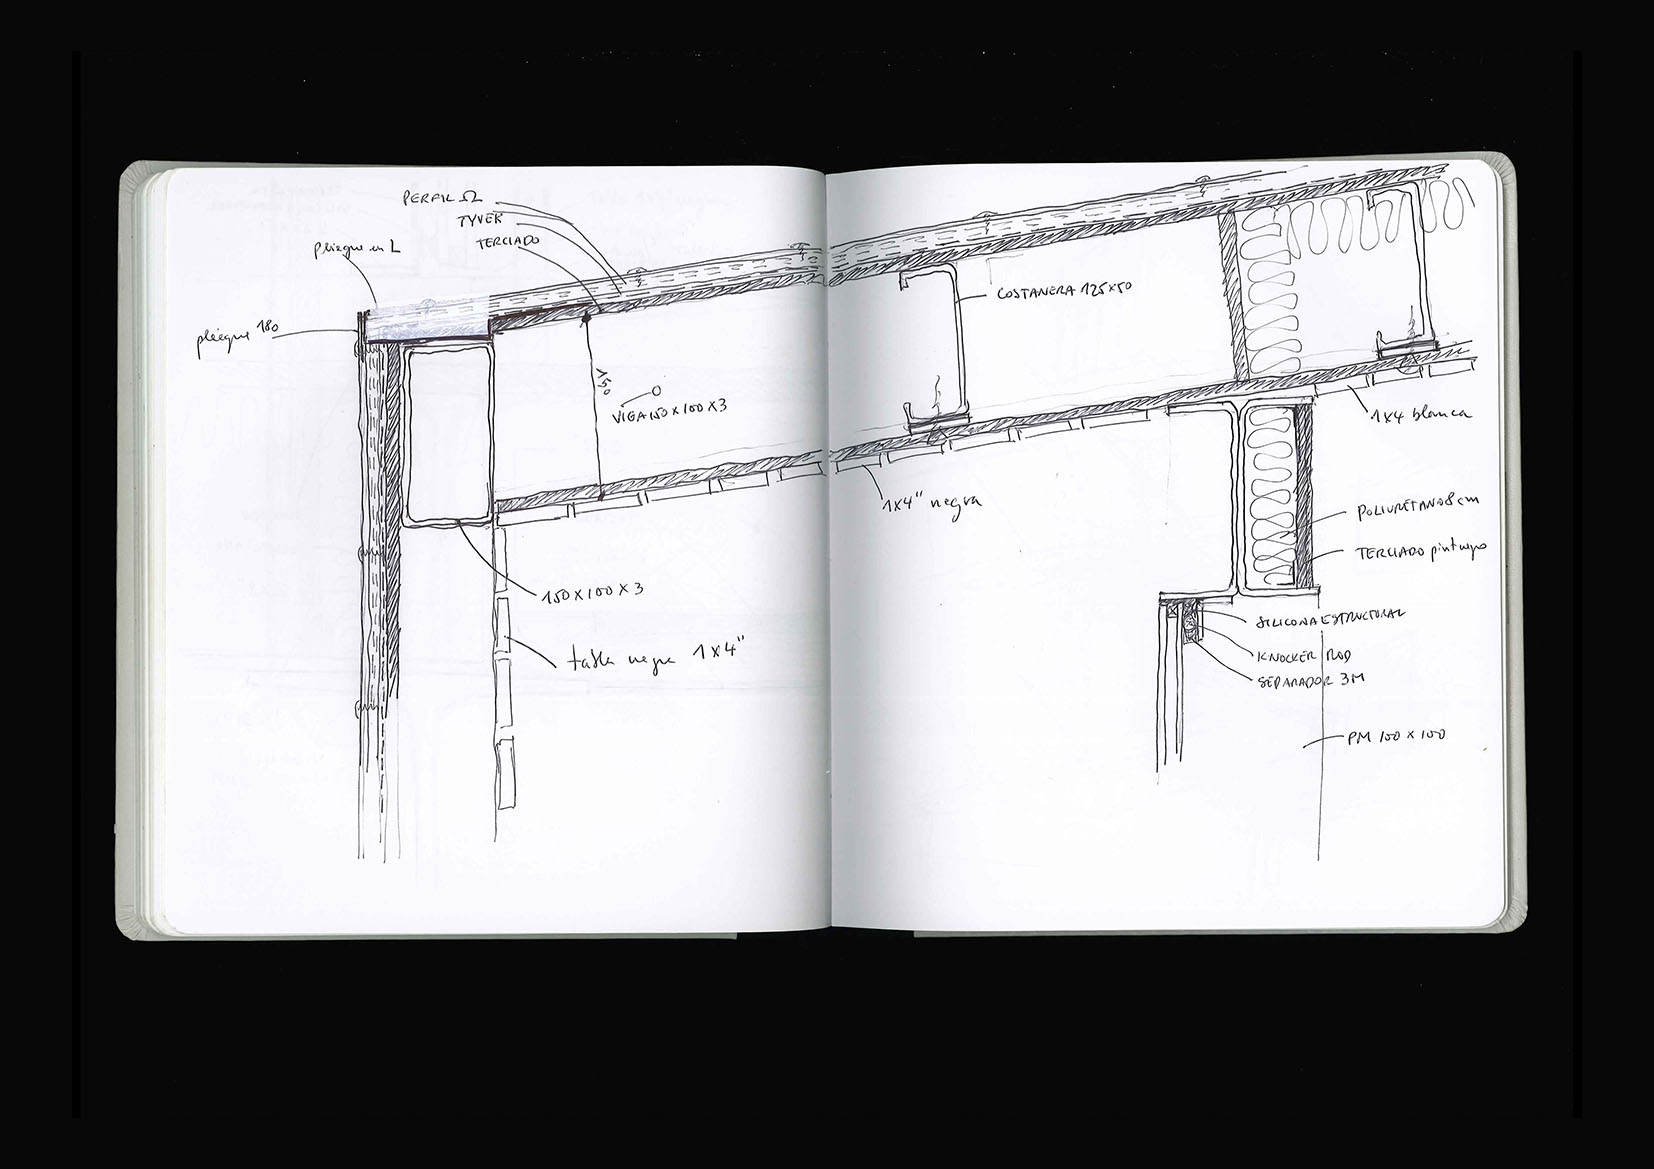 PERFIL Ω
TYVEK
TERCIADO
pliegue en L
pliegue 180
150
VIGA 150 X 100 X 3
150 X 100 X 3
tabla negra 1 X 4"
COSTANERA 125X50
1X4" negra
1X4 blanca
POLIURETANO 8 cm
TERCIADO
SILICONA ESTRUCTURAL
KNOCKER ROD
SEPARADOR 3M
PM 100 X 100